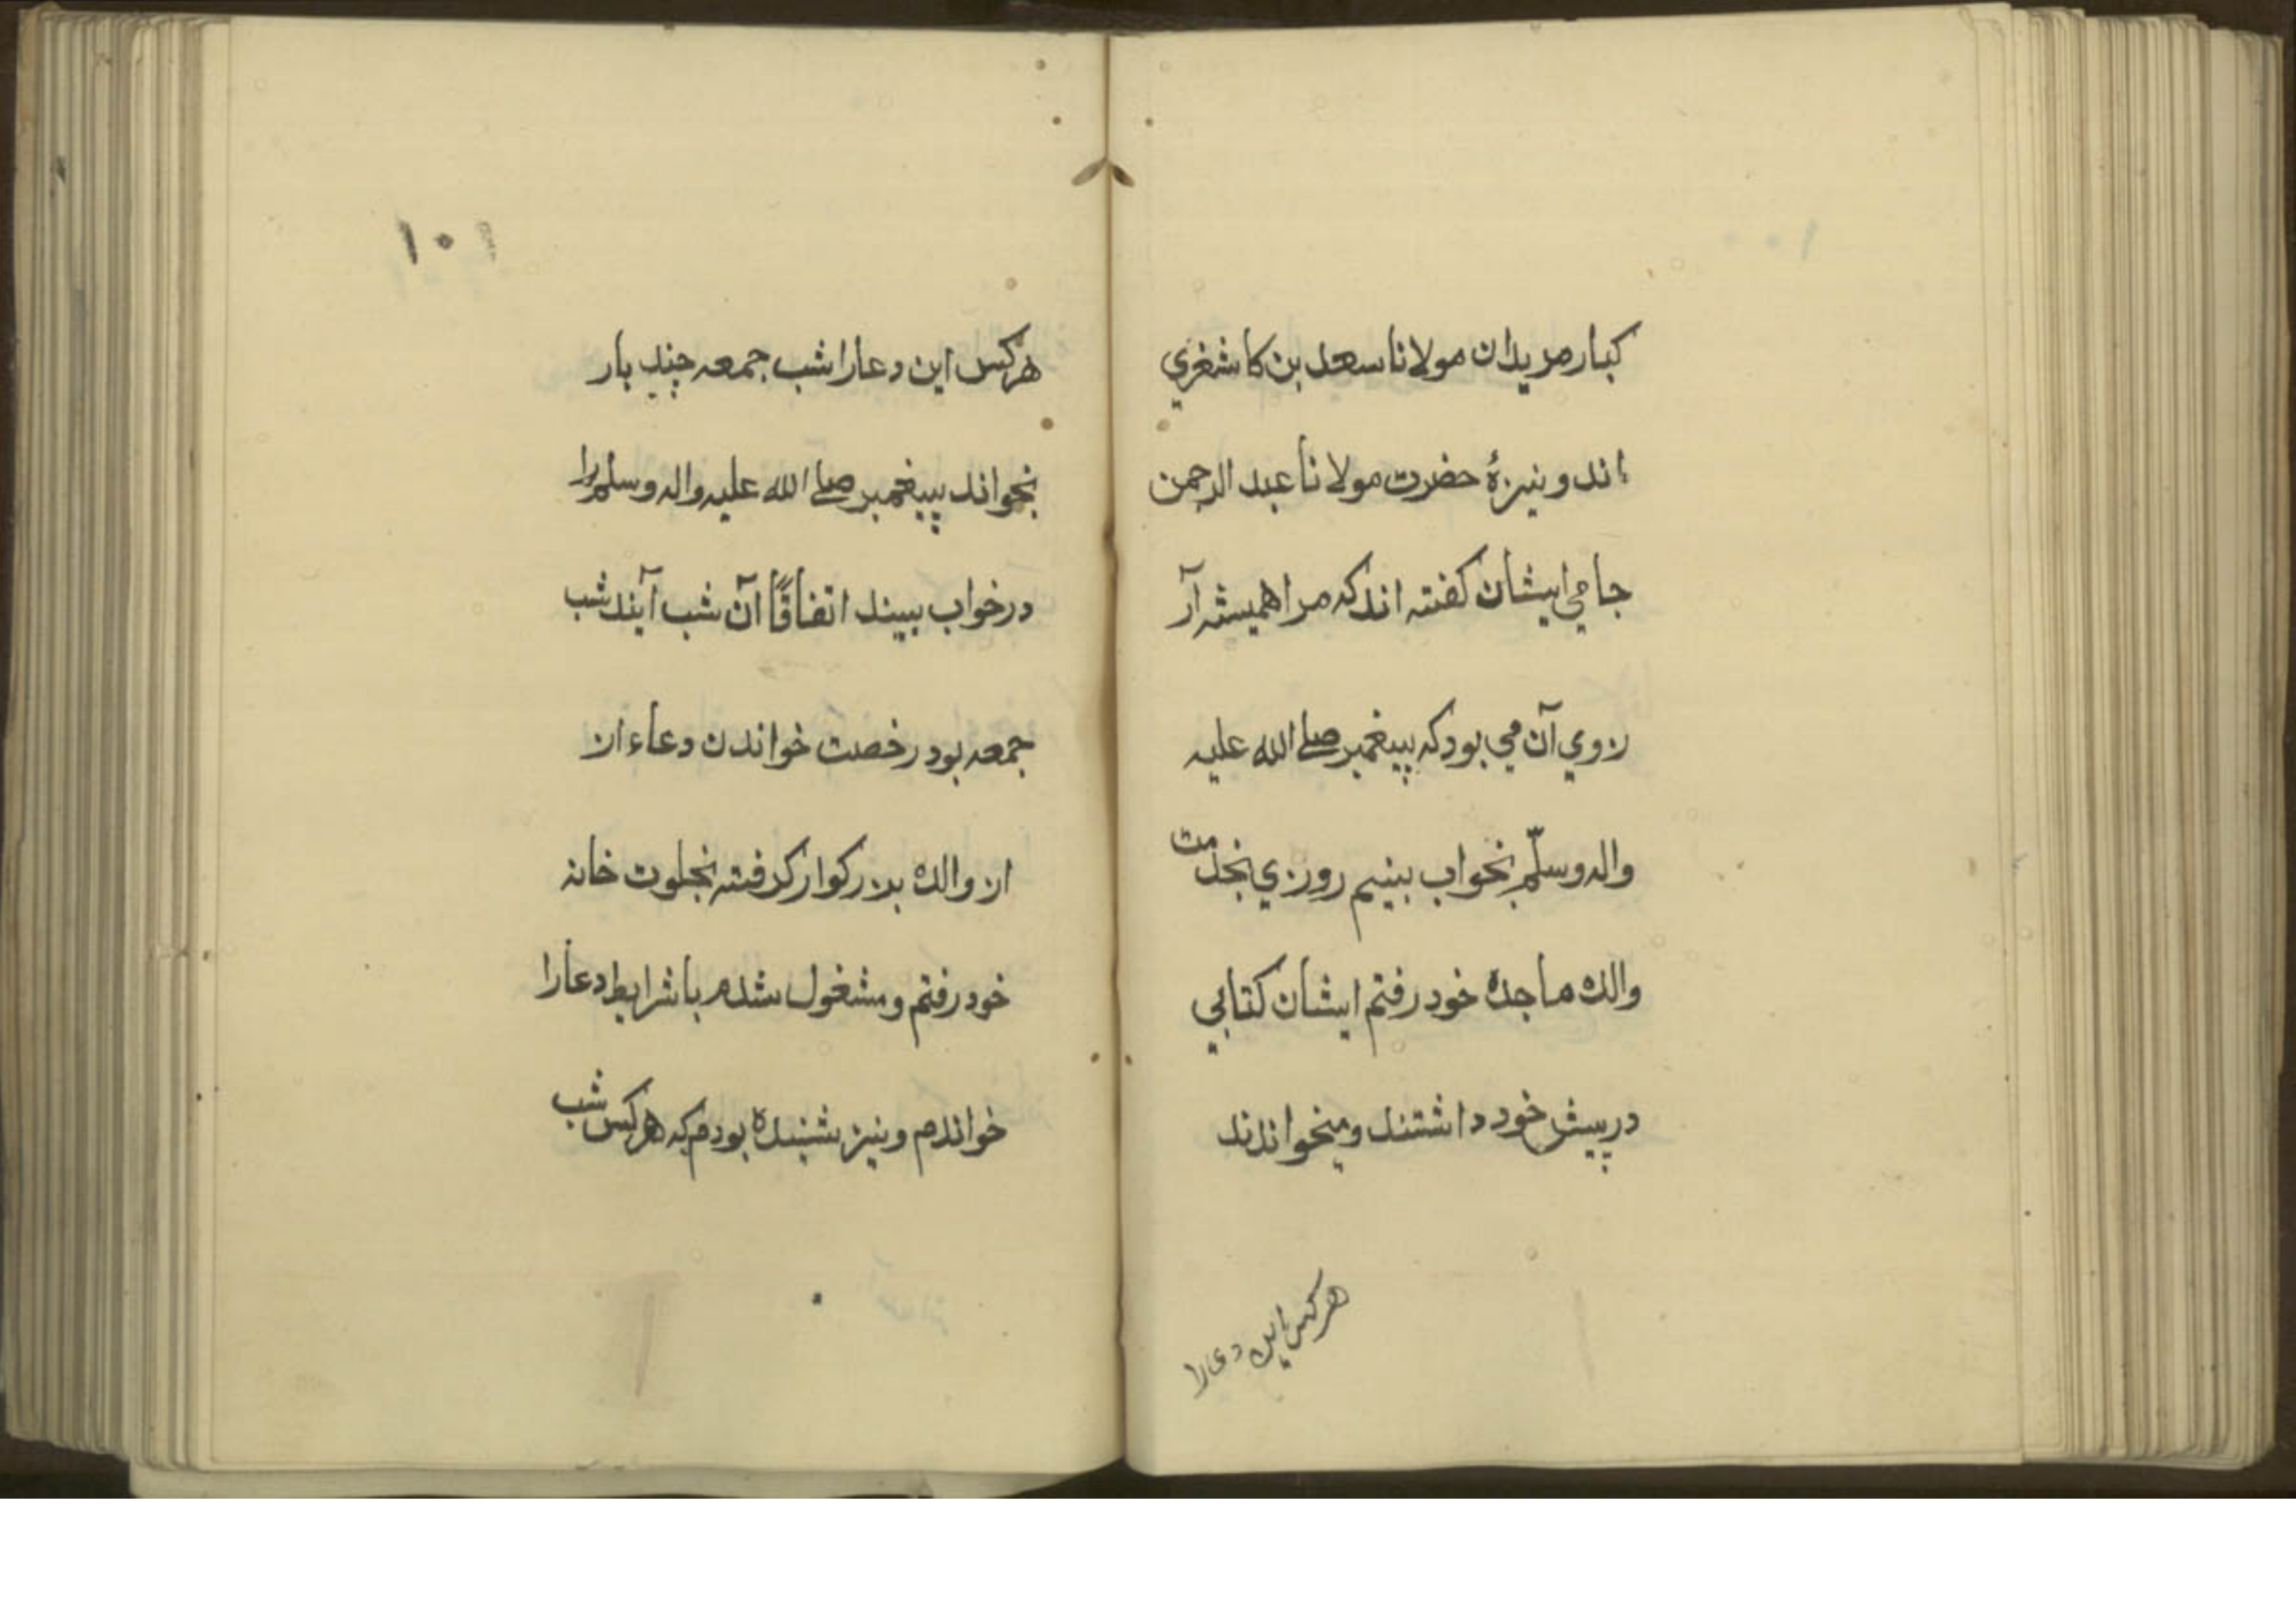 کبار مریدان مولانا سعد بن کاشغري
اند و نیزهٔ حضرت مولانا عبد الرحمن
جامي ایشان کفته اند که مرا همیشه آر
زوي آن مي بود که پیغمبر صلے الله علیه
واله وسلّم بخواب بینیم روزي بخدمت
والده ماجده خود رفتم ایشان کتابي
در پیش خود داشتند و میخواندند
هرکس این دعا را
۱۰۱
هرکس این دعا را شب جمعه چند بار
بخواند پیغمبر صلے الله علیه واله وسلم را
در خواب ببیند اتفاقًا آن شب آیند شب
جمعه بود رخصت خواندن دعاء ان
از والده بزرکوار کرفته بخلوت خانه
خود رفتم و مشغول شدم با شرایط دعا را
خواندم و نیز شنیده بودم که هرکس شب